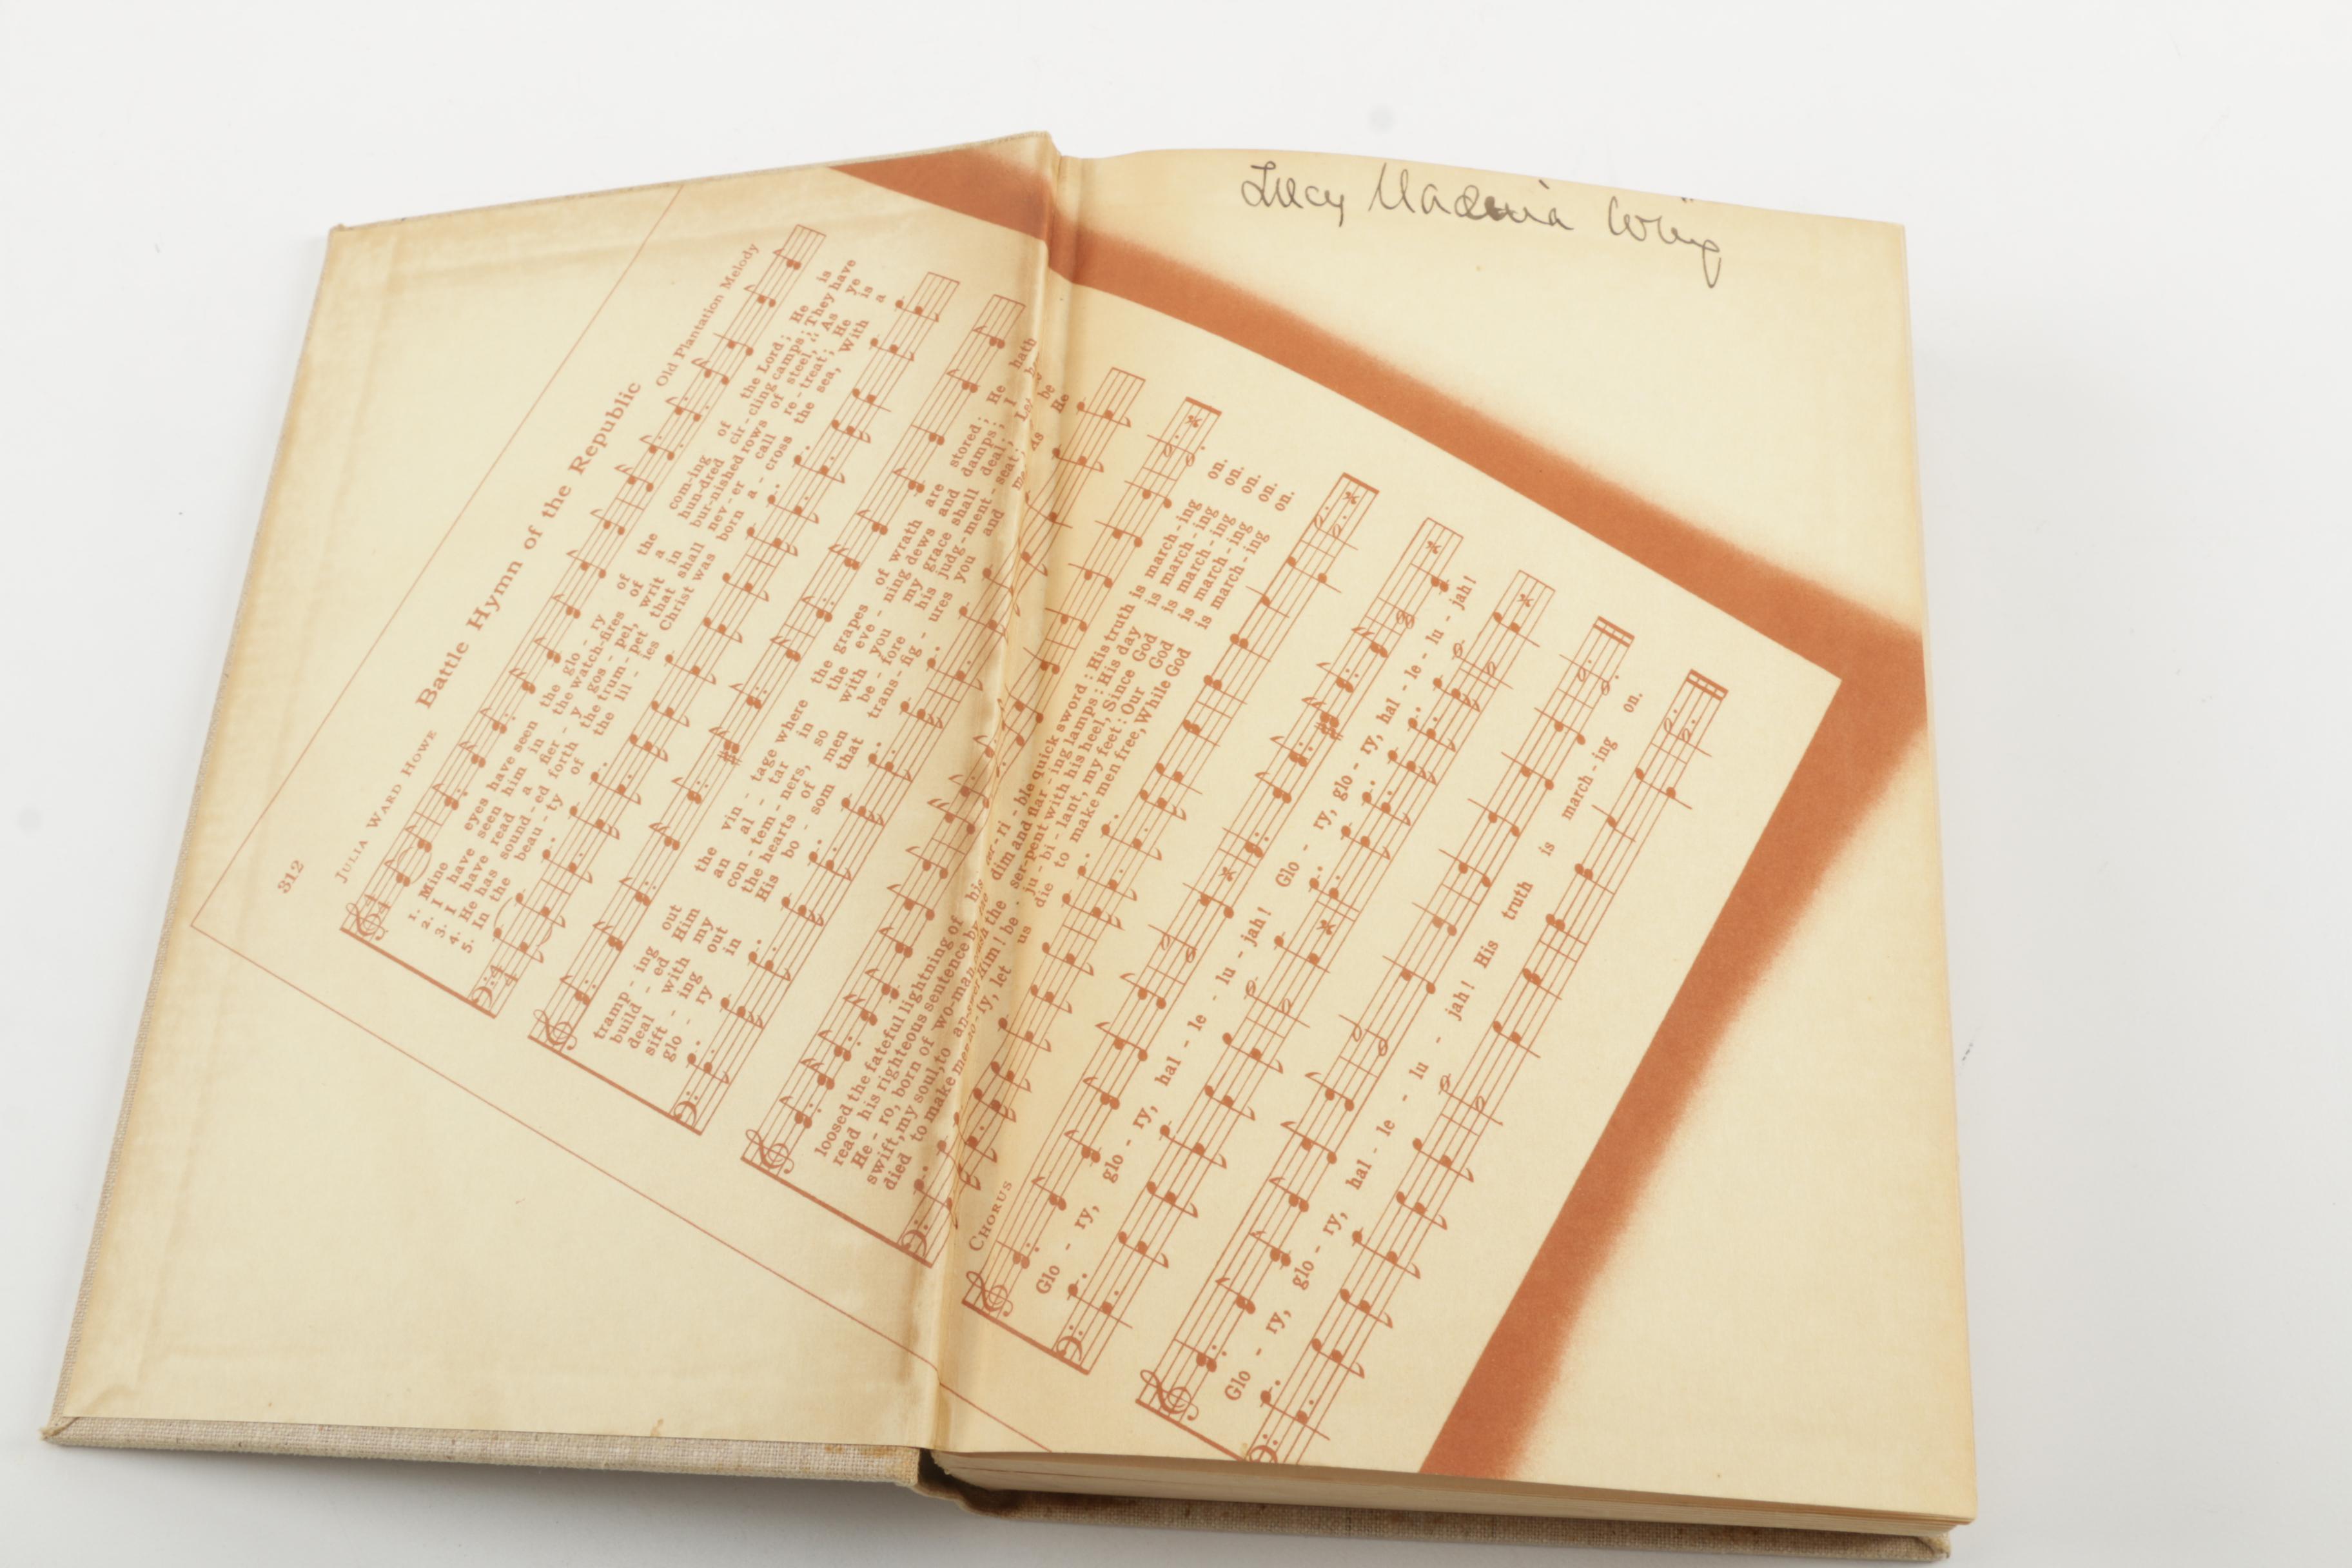 Lucy Madeira Wing
312
Battle Hymn of the Republic
JULIA WARD HOWE Old Plantation Melody
1. Mine eyes have seen the glo - ry of the com-ing of the Lord; He is
2. I have seen him in the watch-fires of a hun-dred cir-cling camps; They have
3. I have read a fier - y gos - pel, writ in bur-nished rows of steel, "As ye
4. He has sound-ed forth the trum-pet that shall nev-er call re-treat; He is
5. In the beau-ty of the lil - ies Christ was born a-cross the sea, With a
tramp-ing out the vin - tage where the grapes of wrath are stored; He hath
build - ed Him an al - tar in the eve - ning dews and damps; I
deal with my con-tem-ners, so with you my grace shall deal; Let
sift - ing out the hearts of men be - fore his judg-ment-seat;
glo - ry in His bo - som that trans-fig - ures you and me; As He
loosed the fateful lightning of his ter-ri-ble quick sword; His truth is march-ing on.
read his righteous sentence by the dim and flar-ing lamps; His day is march-ing on.
He - ro, born of wo-man, the ser-pent with his heel, Since God is march-ing on.
swift, my soul, to answer Him! be ju-bi-lant, my feet; Our God is march-ing on.
died to make men ho-ly, let us die to make men free, While God is march-ing on.
CHORUS
Glo - ry, glo - ry, hal - le - lu - jah! Glo - ry, glo - ry, hal - le - lu - jah!
Glo - ry, glo - ry, hal - le - lu - jah! His truth is march-ing on.